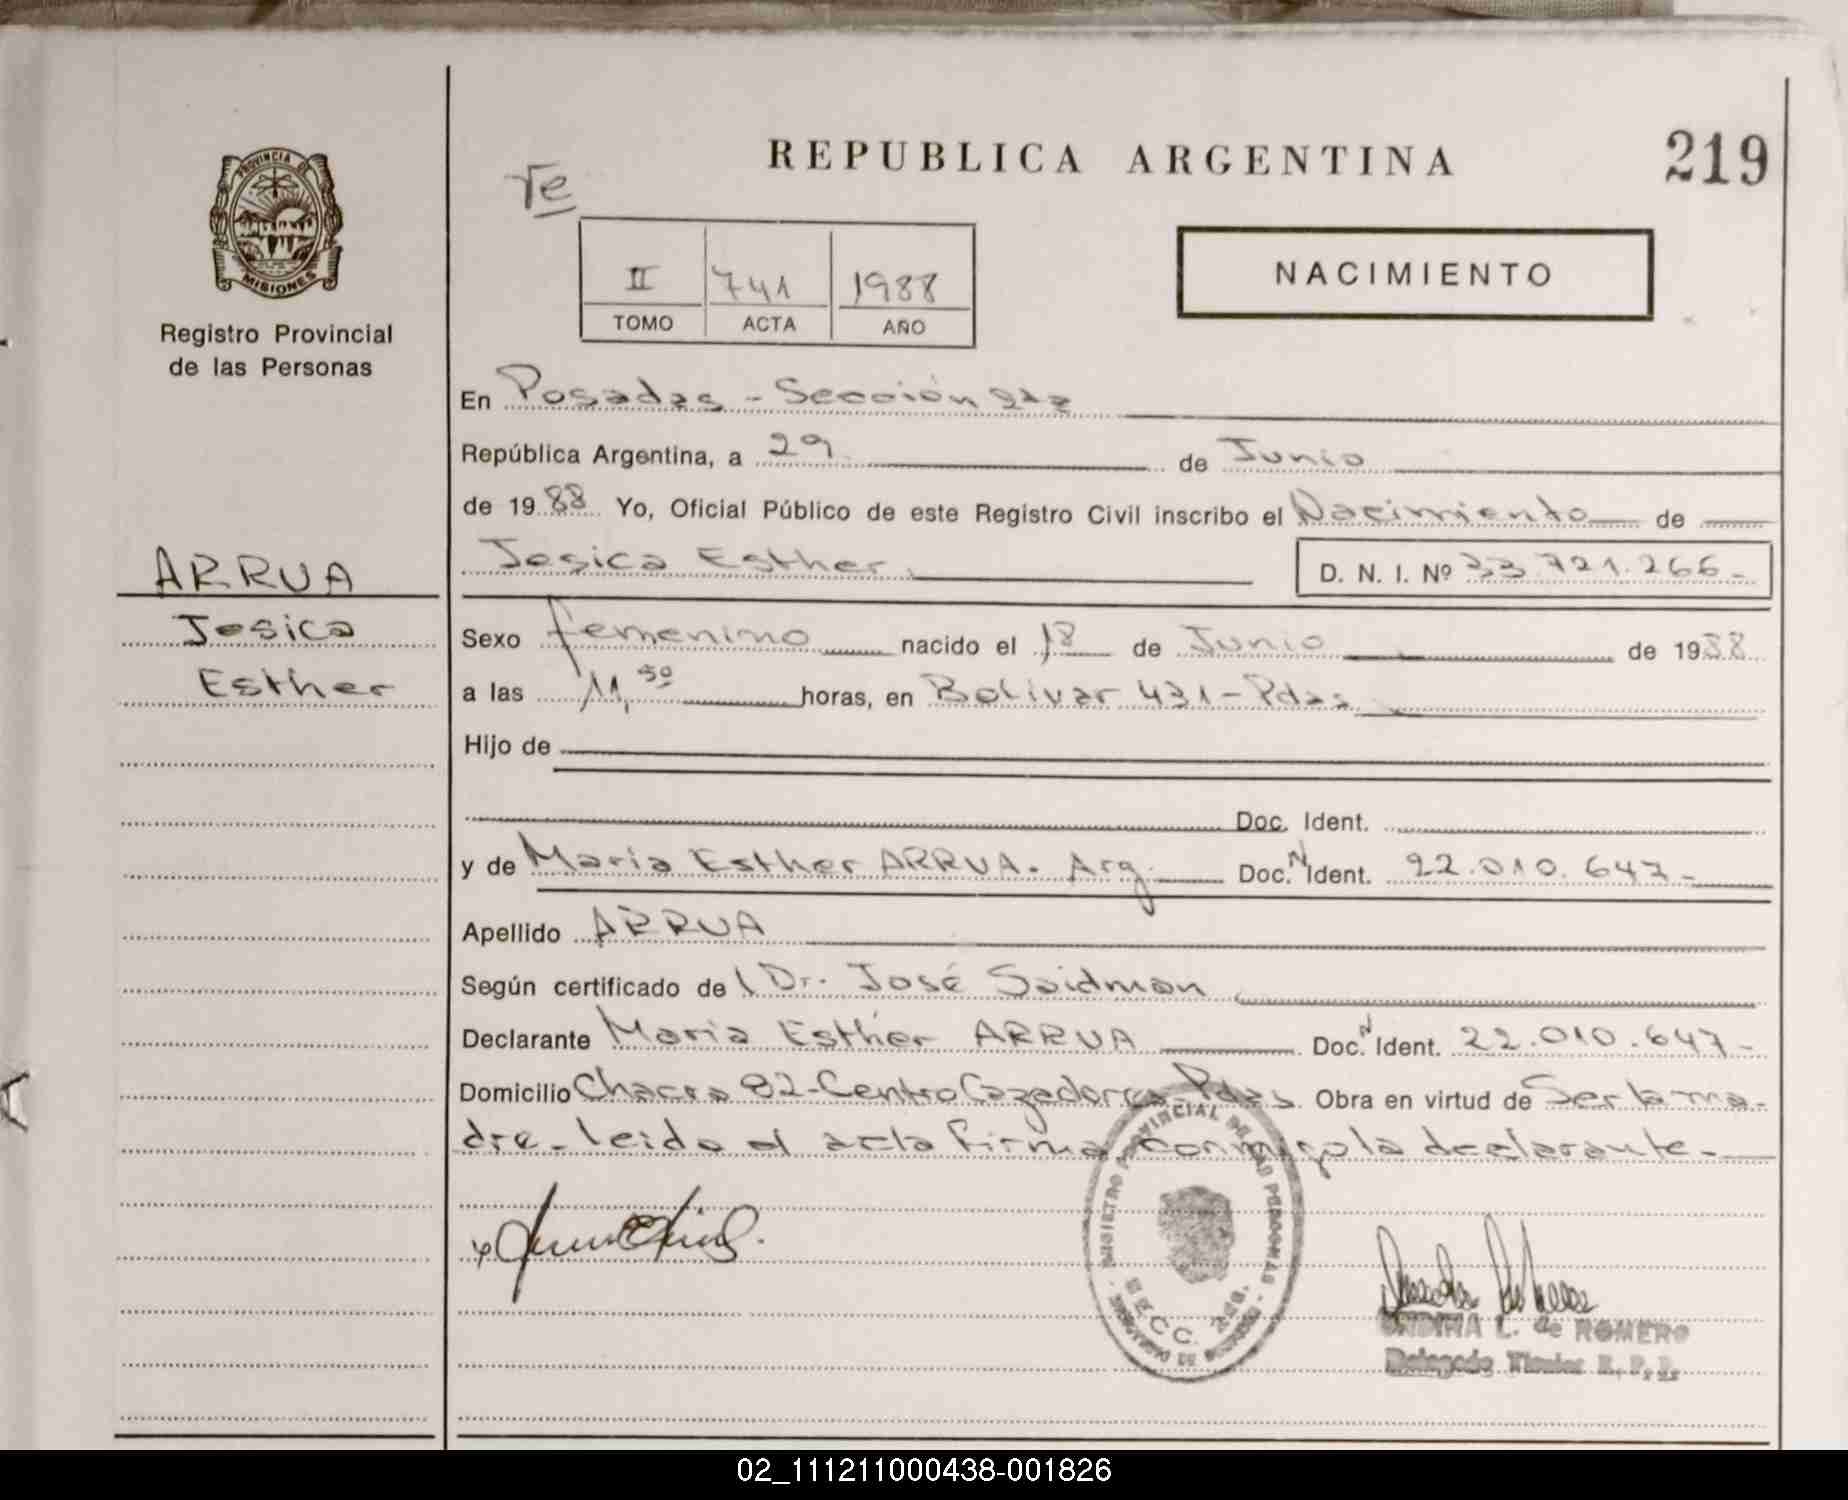 REPUBLICA ARGENTINA
219
PROVINCIA DE
MISIONES
Registro Provincial
de las Personas
Te
II 741 1988
TOMO ACTA AÑO
NACIMIENTO
En Posadas - Sección 2da
República Argentina, a 29 de Junio
de 1988 Yo, Oficial Público de este Registro Civil inscribo el Nacimiento de
Jesica Esther D. N. I. Nº 33.721.266-
ARRUA
Jesica
Esther
Sexo femenino nacido el 18 de Junio de 1988
a las 11,50 horas, en Bolivar 431 - Pdas
Hijo de
Doc. Ident.
y de Maria Esther ARRUA. Arg. Doc. N Ident. 22.010.647-
Apellido ARRUA
Según certificado de l Dr. José Soidman
Declarante Maria Esther ARRUA Doc. N Ident. 22.010.647-
Domicilio Chacra 82-Centro Cazadores-Pdas Obra en virtud de Ser la ma-
dre- leido el acta firma conmigo la declarante.-
REGISTRO PROVINCIAL DE LAS PERSONAS
SECC. 2da.
L. de ROMERO
Delegado Titular R. P. P.
02_111211000438-001826